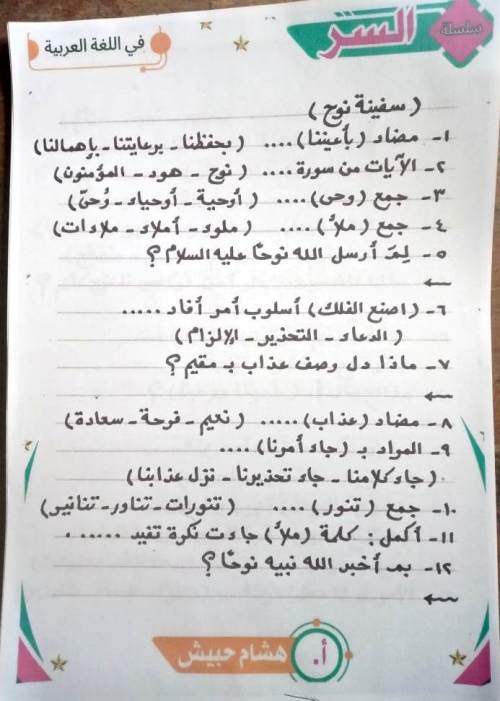 سلسلة
السر
في اللغة العربية
( سفينة نوح )
١- مضاد (بأعيننا) .... ( بحفظنا - برعايتنا - بإهمالنا)
٢- الآيات من سورة .... ( نوح - هود - المؤمنون)
٣- جمع (وحى) .... ( أوحية - أوحياء - وُحىّ)
٤- جمع (ملأ) .... ( ملوء - أملاء - ملاءات)
٥- لِمَ أرسل الله نوحًا عليه السلام ؟
٦- (اصنع الفلك) أسلوب أمر أفاد .....
( الدعاء - التحذير - الإلزام )
٧- ماذا دل وصف عذاب بـ مقيم ؟
٨- مضاد (عذاب) ..... ( نعيم - فرحة - سعادة)
٩- المراد بـ (جاء أمرنا) ....
(جاء كلامنا - جاء تحذيرنا - نزل عذابنا )
١٠- جمع ( تنور ) .... ( تنورات - تناور - تنانير)
١١- أكمل : كلمة (ملأ) جاءت نكرة تفيد ..... .
١٢- بم أخبر الله نبيه نوحًا ؟
أ. هشام حبيش